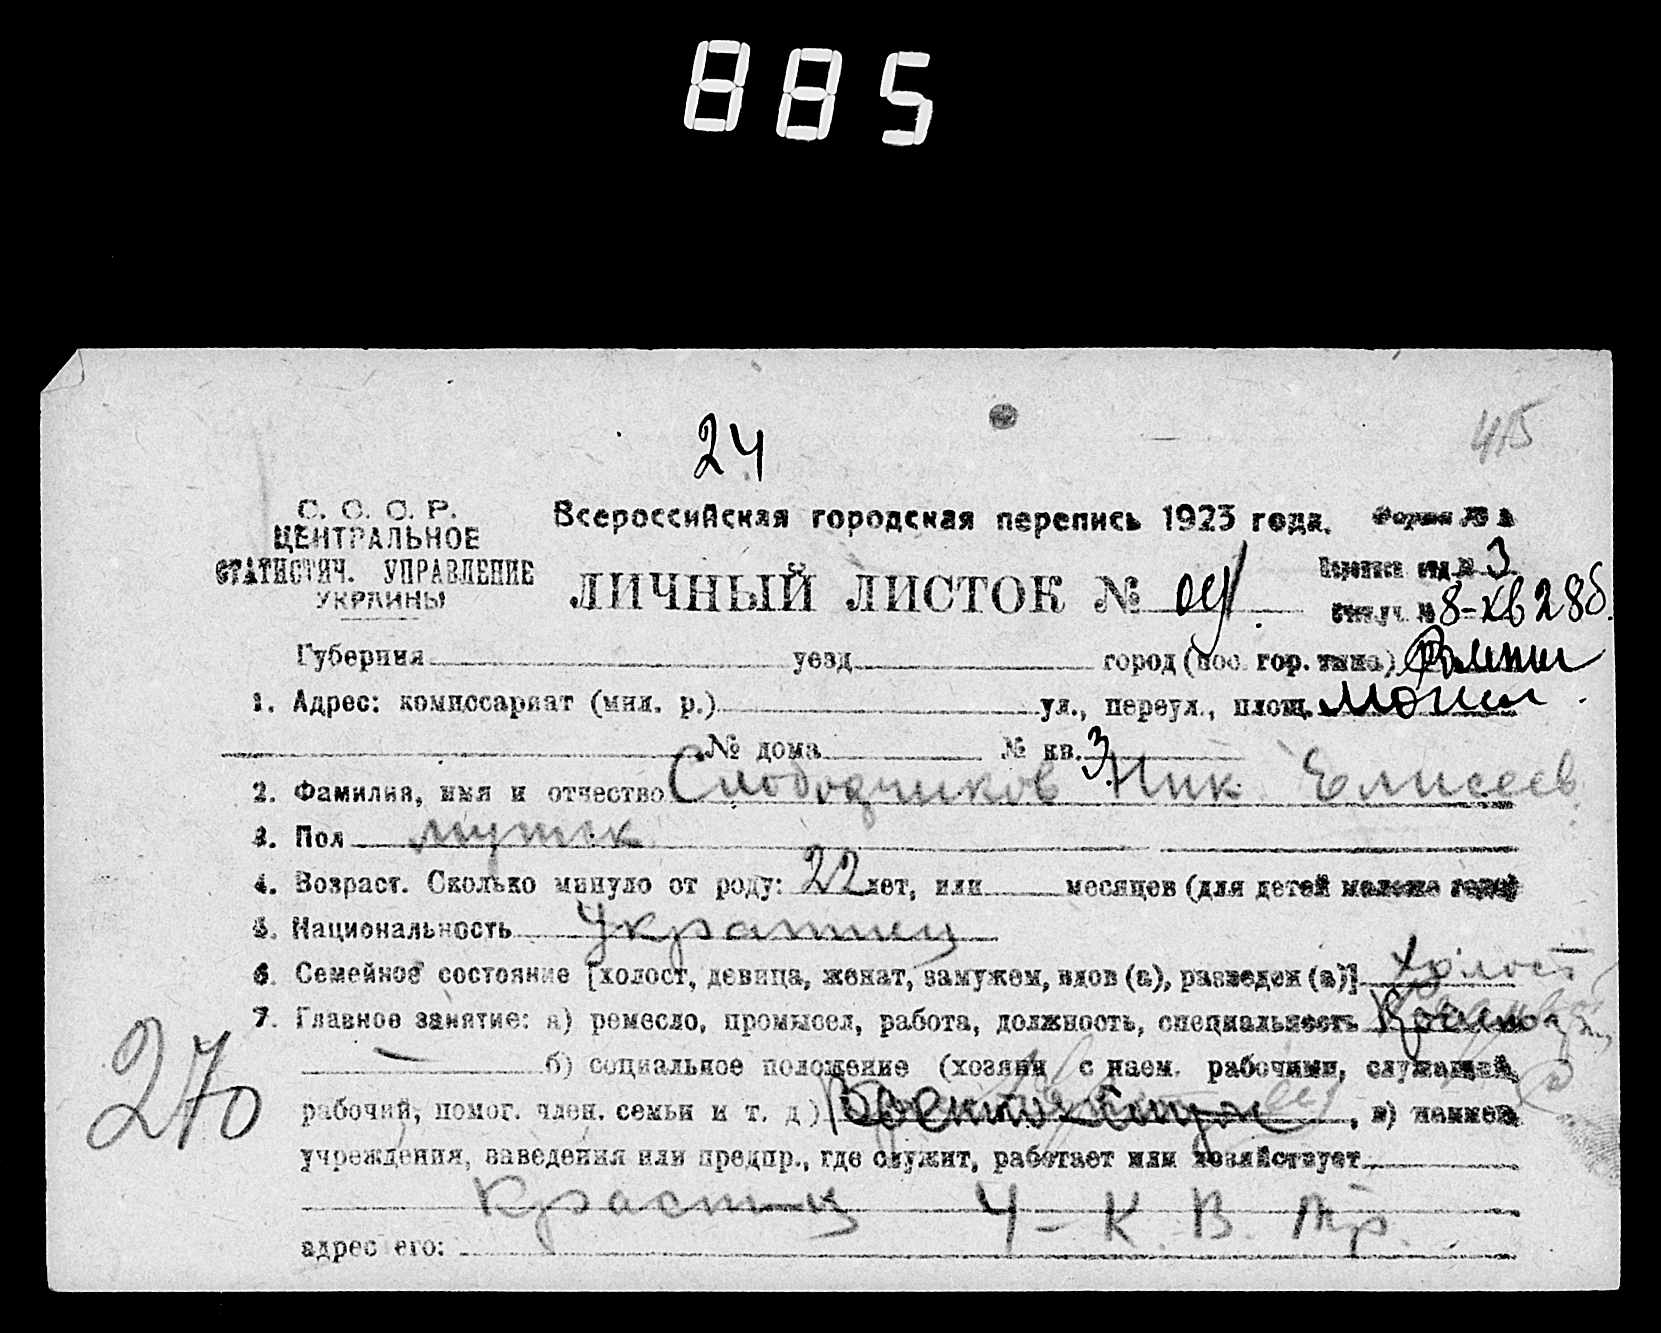 885
415
24
С. С. С. Р.
ЦЕНТРАЛЬНОЕ
СТАТИСТИЧ. УПРАВЛЕНИЕ
УКРАИНЫ
Всероссийская городская перепись 1923 года.
Форма №
ЛИЧНЫЙ ЛИСТОК №
№ 3
№ 8-кв 28б
Губерния уезд город (пос. гор. типа)
1. Адрес: комиссариат (мил. р.) ул., переул., площ.
№ дома № кв. 3
2. Фамилия, имя и отчество Слободчиков Ник Елисеев
3. Пол мужск
4. Возраст. Сколько минуло от роду: 22 лет, или месяцев (для детей моложе года)
5. Национальность Украинец
6. Семейное состояние [холост, девица, женат, замужем, вдов (а), разведен (а)] холост
7. Главное занятие: а) ремесло, промысел, работа, должность, специальность
б) социальное положение (хозяин с наем. рабочими, служащий,
рабочий, помог. член. семьи и т. д.) , в) наимен.
учреждения, заведения или предпр., где служит, работает или хозяйствует
Ч - К. В.
адрес его:
270